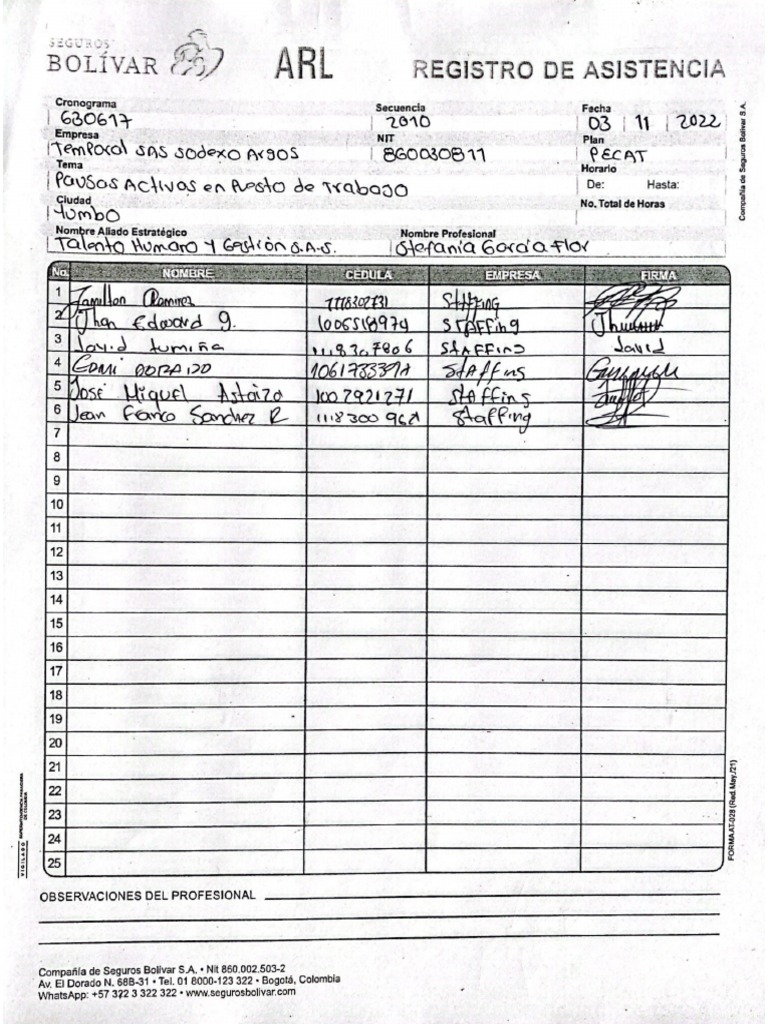 SEGUROS
BOLÍVAR
ARL
REGISTRO DE ASISTENCIA
Cronograma Secuencia Fecha
630617 2010 03 11 2022
Empresa NIT Plan
Temporal SAS Sodexo Argos 860030811 PECAT
Tema Horario
Pausas Activas en Puesto de Trabajo De: Hasta:
Ciudad No. Total de Horas
Yumbo
Nombre Aliado Estratégico Nombre Profesional
Talento Humano y Gestión S.A.S. Stefania Garcia Flor
No. NOMBRE CEDULA EMPRESA FIRMA
1 Ramirez Staffing
2 Jhon Edward g. 1006518974 STAFFing
3 David 1118307806 STAFFING David
4 DORADO Staffing
5 José Miguel Astaiza 1002921271 Staffins
6 Jean Franco Sanchez R 1118300962 Staffing
7
8
9
10
11
12
13
14
15
16
17
18
19
20
21
22
23
24
25
OBSERVACIONES DEL PROFESIONAL
Compañía de Seguros Bolívar S.A. • Nit 860.002.503-2
Av. El Dorado N. 68B-31 • Tel. 01 8000-123 322 • Bogotá, Colombia
WhatsApp: +57 322 3 322 322 • www.segurosbolivar.com
Compañía de Seguros Bolívar S.A.
FORMA AT-028 (Red.May./21)
VIGILADO SUPERINTENDENCIA FINANCIERA
DE COLOMBIA